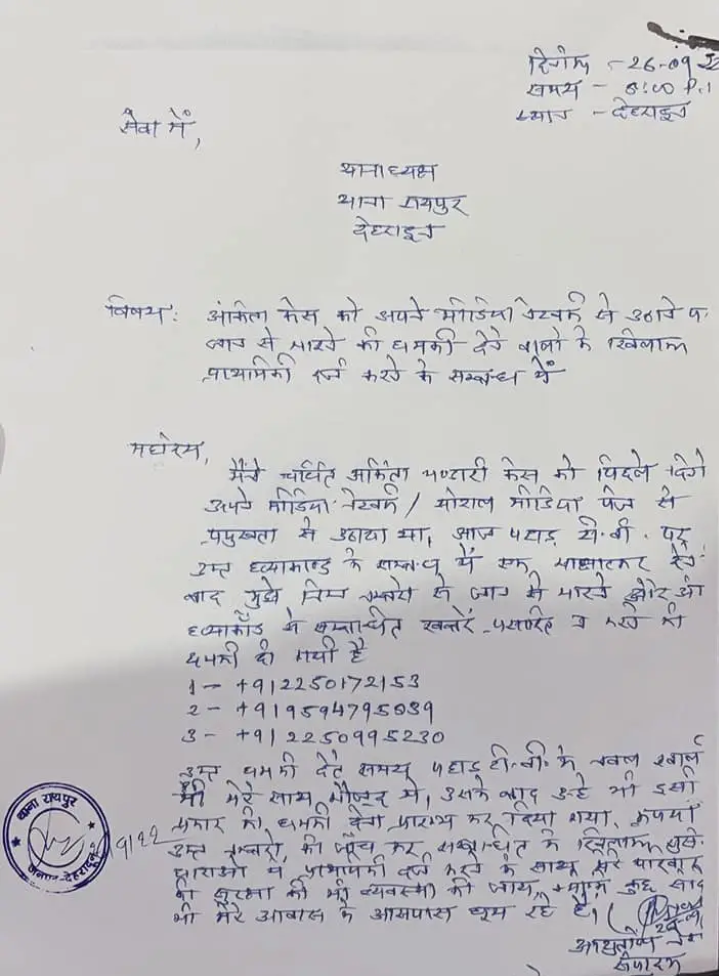 दिनांक :- 26-09-22
समय - 8:00 P.M
स्थान - देहरादून
सेवा में,
थानाध्यक्ष
थाना रायपुर
देहरादून
विषय : अंकिता केस को अपने मीडिया नेटवर्क से उठाने पर
जान से मारने की धमकी देने वालों के खिलाफ
प्राथमिकी दर्ज करने के सम्बन्ध में
महोदय,
मैंने चर्चित अंकिता भण्डारी केस को पिछले दिनों
अपने मीडिया नेटवर्क / सोशल मीडिया पेज से
प्रमुखता से उठाया था, आज पहाड़ टी.वी. पर
उक्त हत्याकाण्ड के सम्बन्ध में एक साक्षात्कार देने
बाद मुझे निम्न नम्बरों से जान से मारने और
हत्याकाँड से सम्बन्धित खबरें प्रसारित न करने की
धमकी दी गयी है
1 - +912250172153
2 - +919594795039
3 - +912250995230
उक्त धमकी देते समय पहाड़ टी.वी. के
भी मेरे साथ मौजूद थे, उसके बाद उन्हें भी इसी
प्रकार की धमकी देना प्रारम्भ कर दिया गया, कृपया
उक्त नम्बरों की जाँच कर सम्बन्धित के खिलाफ
धाराओं में प्राथमिकी दर्ज करने के साथ मेरे परिवार
की सुरक्षा की भी व्यवस्था की जाय, कुछ लोग
भी मेरे आवास के आसपास घूम रहे हैं।
आशुतोष नेगी
थाना रायपुर
जनपद-देहरादून